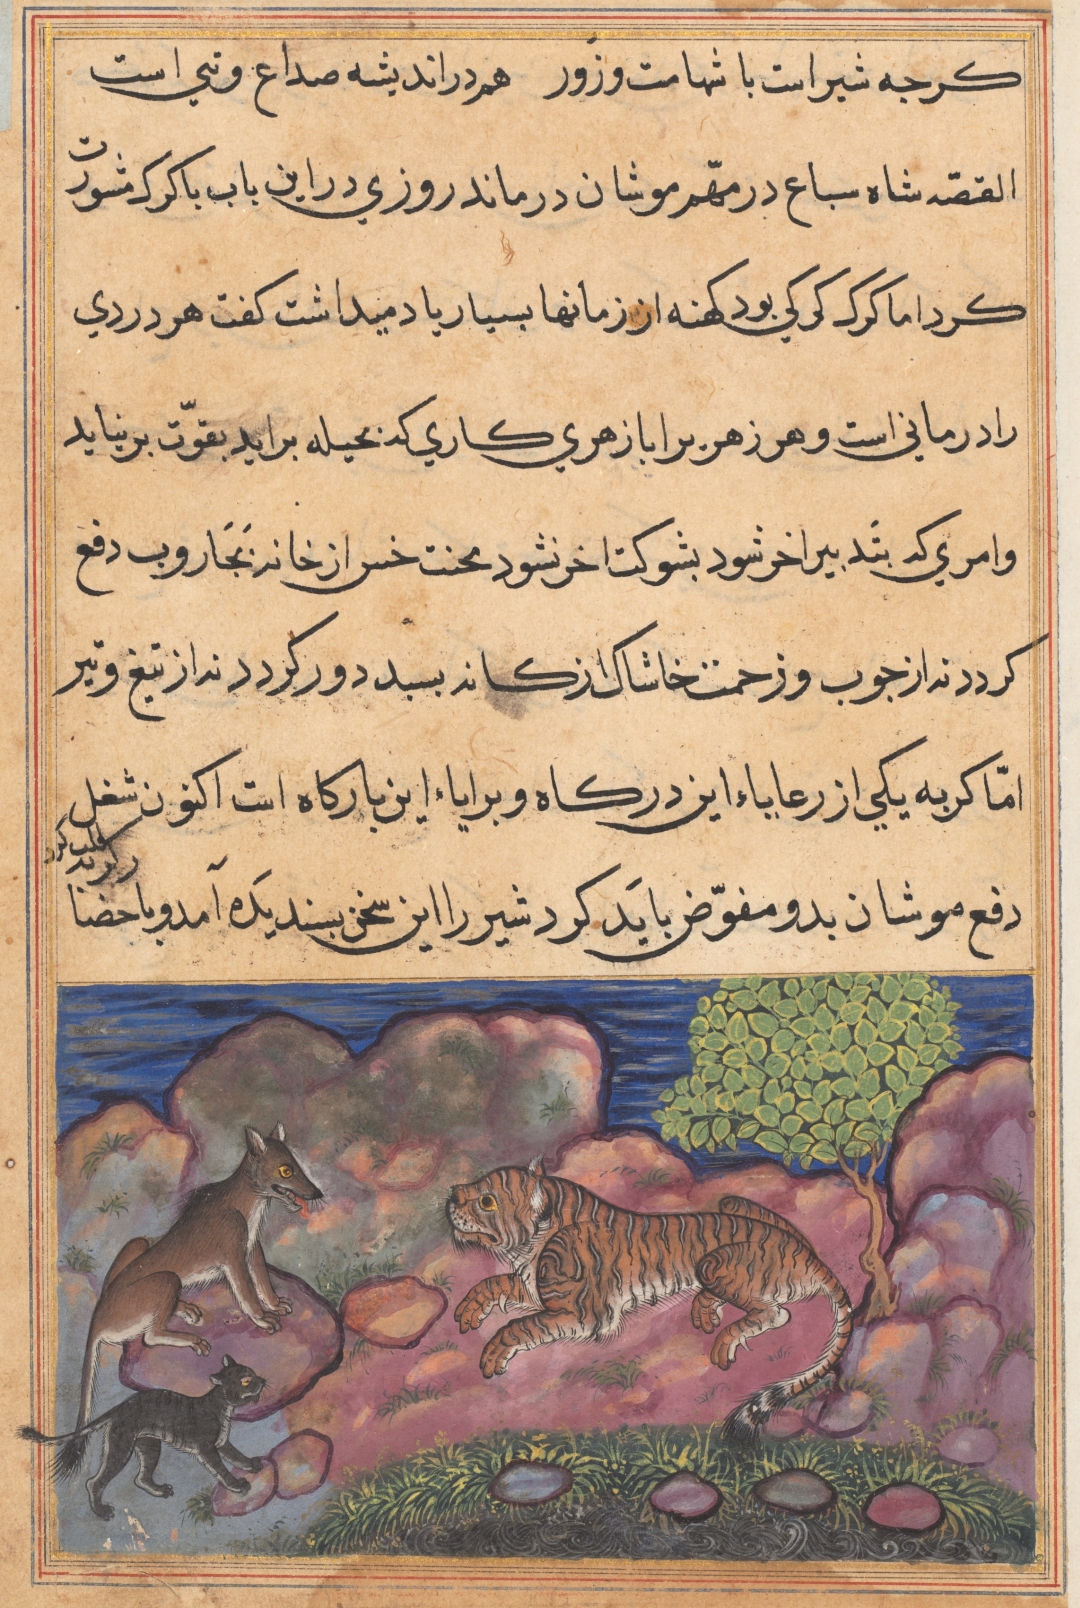 كرجه شيراست با شهامت وزَور هم دراندیشه صداع وتبي است
القصّه شاه سباع در مهّم موشان درماند روزي دراین باب باكرك مشورت
كرد اما كرك كركي بود كهنه از زمانها بسیار یاد میداشت كفت هر دردي
را درماني است و هر زهر برا بازهري كاري كه بحیله براید بقوّت برنیاید
وامري كه بتَدبیر اخر شود بشوكت اخر نشود محنت خس از خانه بَجَاروب دفع
كردد نه از جوب و زحمت خاشاك از كانه بسبد دور كردد نه از تیغ وتیر
امّا كربه یكي از رعایاء این دركاه و برایاء این باركاه است اكنون شغل
دفع موشان بدو مفوّض بایَد كرد شیر را این سخن بسندیَده آمد وباحضا
ر كربه طلب كرد